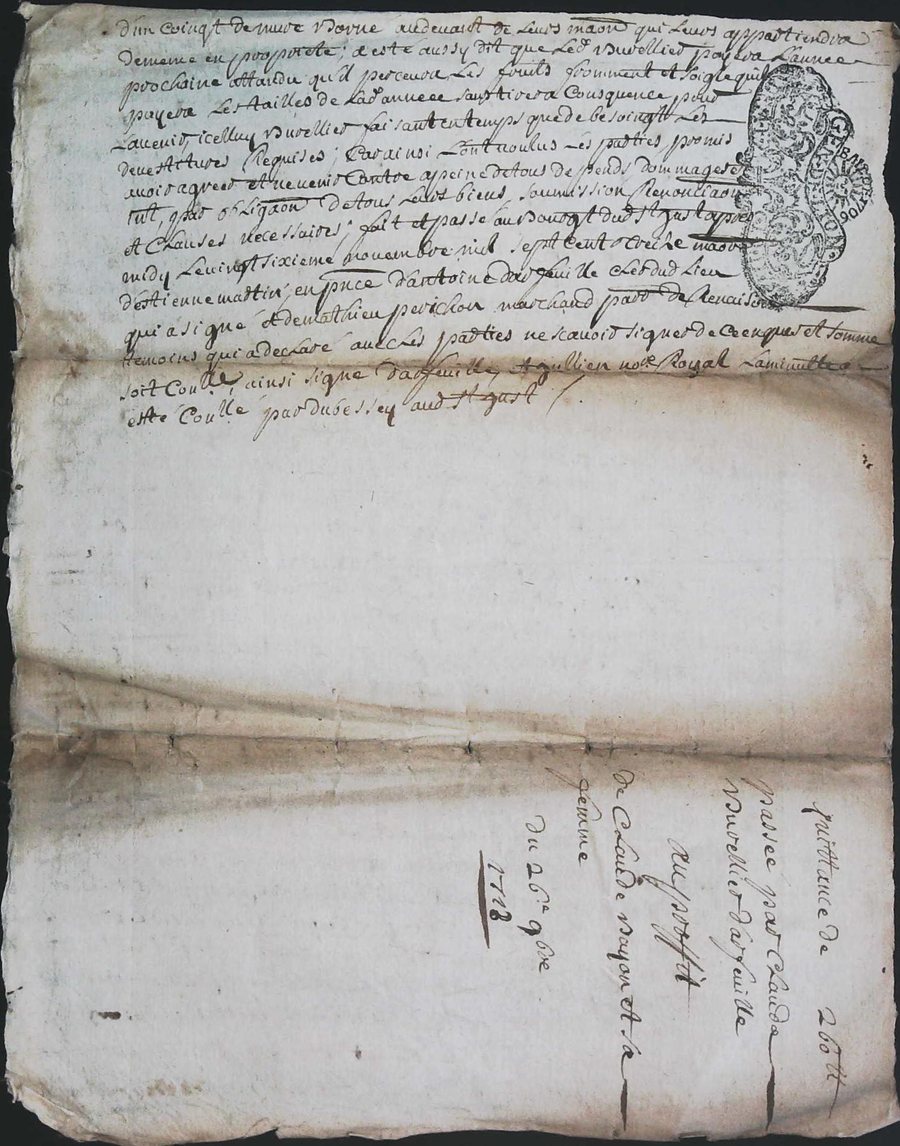 d'un coingt de mure Borne audevant de leurs maon qui leurs appartiendra
de meme en proprieté; a este aussy dit que Led Buvellier payera Lannee
prochaine attandu qu'il percevra Les fruits fromment et soigle quil
payera Les tailles de Lad annee sans tirera Consquence pour
Lavenir, icelluy Buvellier faisant en temps que de besoingt Les
devestitures Requises; Car ainsi Lont voulus Les parties promis
avoir agreer et ne venir Contre a peine de tous despends dommages et
int, par obligaon de tous Leurs biens, soumission Renonciaon
et Clauses necessaires; fait et passé au Bourgt dud St just apres
midy Le vingt sixieme novembre mil sept cent treize maon
d'estienne martin, en pnce d'antoine darfeuille Clerc dud Lieu
qui a signé et de mathieu perichon marchand parr de Renaison
temoins qui a declaré avec Les parties ne scavoir signer de ce enquis et somme
soit Conllé, ainsi signe darfeuille, et gullien nore Royal La minutte a
esté Conllé par dubessey aud St just
GE BAIL DE 1706
LYON
quittance de 260 lt
passée par Claude
Buvellier darfeuille
au proffit
de Claude Bayon et sa
femme
du 26e 9bre
1713